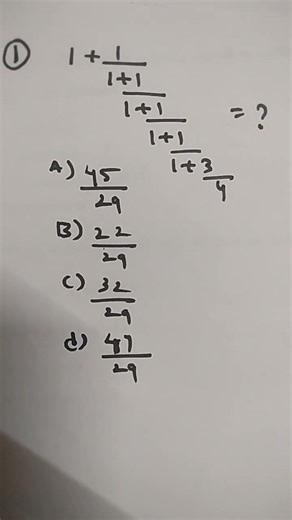 ① 1 + 1
1 + 1
1 + 1
1 + 1
1 + 3
4
= ?
A) 45
29
B) 22
29
C) 32
29
d) 47
29